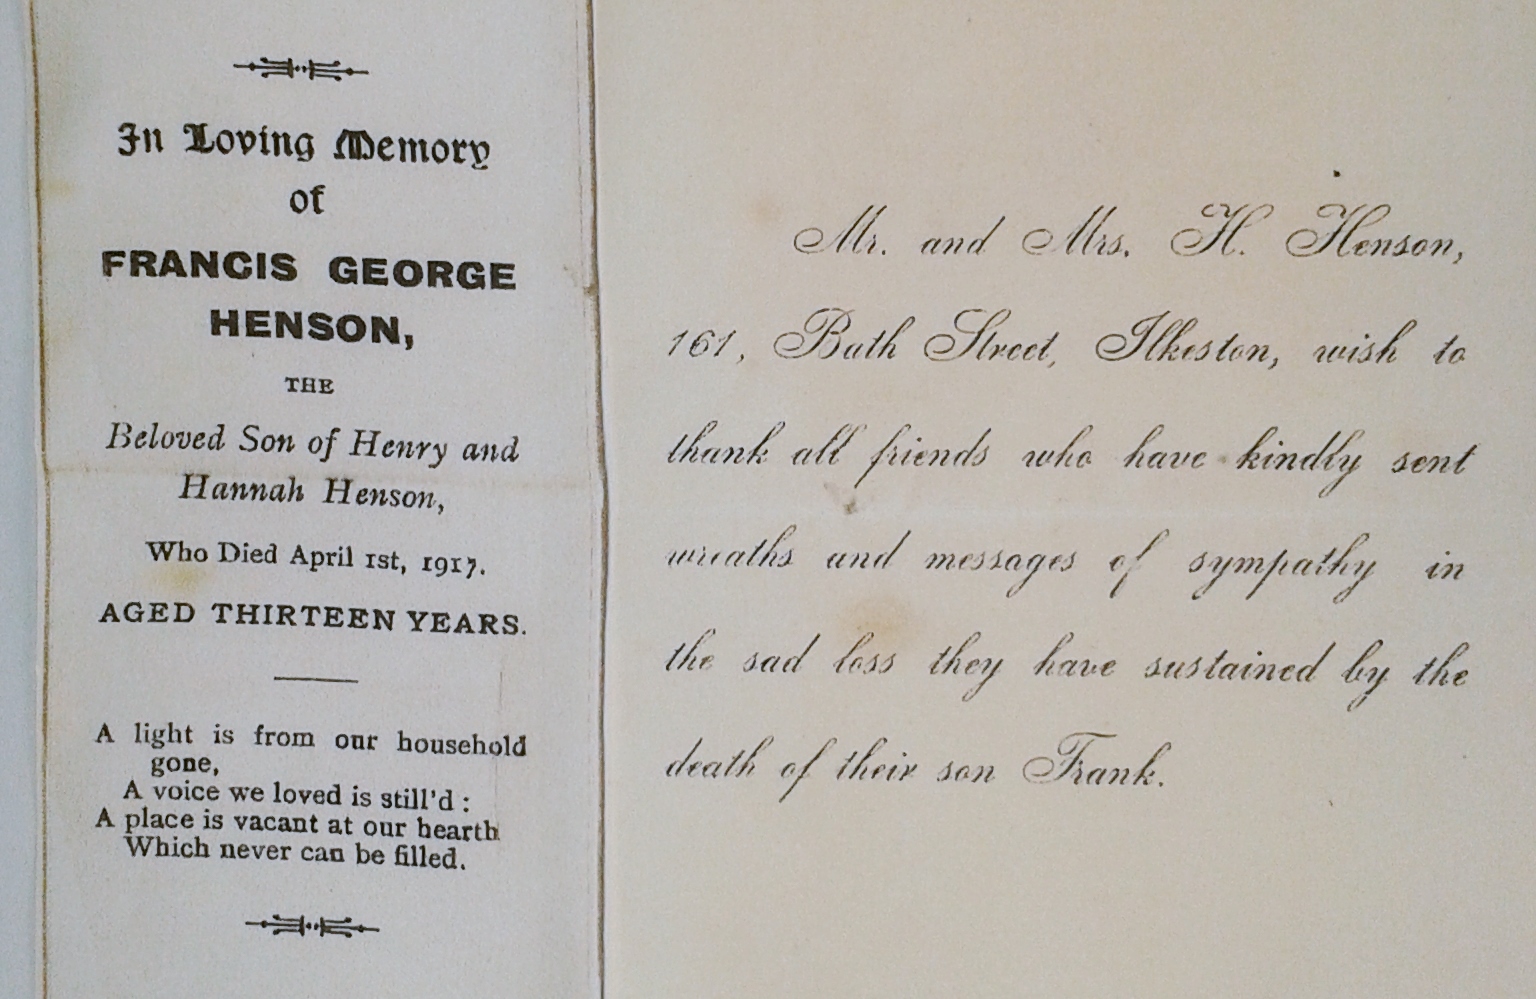 In Loving Memory
of
FRANCIS GEORGE
HENSON,
THE
Beloved Son of Henry and
Hannah Henson,
Who Died April 1st, 1917.
AGED THIRTEEN YEARS.
A light is from our household
gone,
A voice we loved is still'd :
A place is vacant at our hearth
Which never can be filled.
Mr. and Mrs. H. Henson,
161, Bath Street, Ilkeston, wish to
thank all friends who have kindly sent
wreaths and messages of sympathy in
the sad loss they have sustained by the
death of their son Frank.